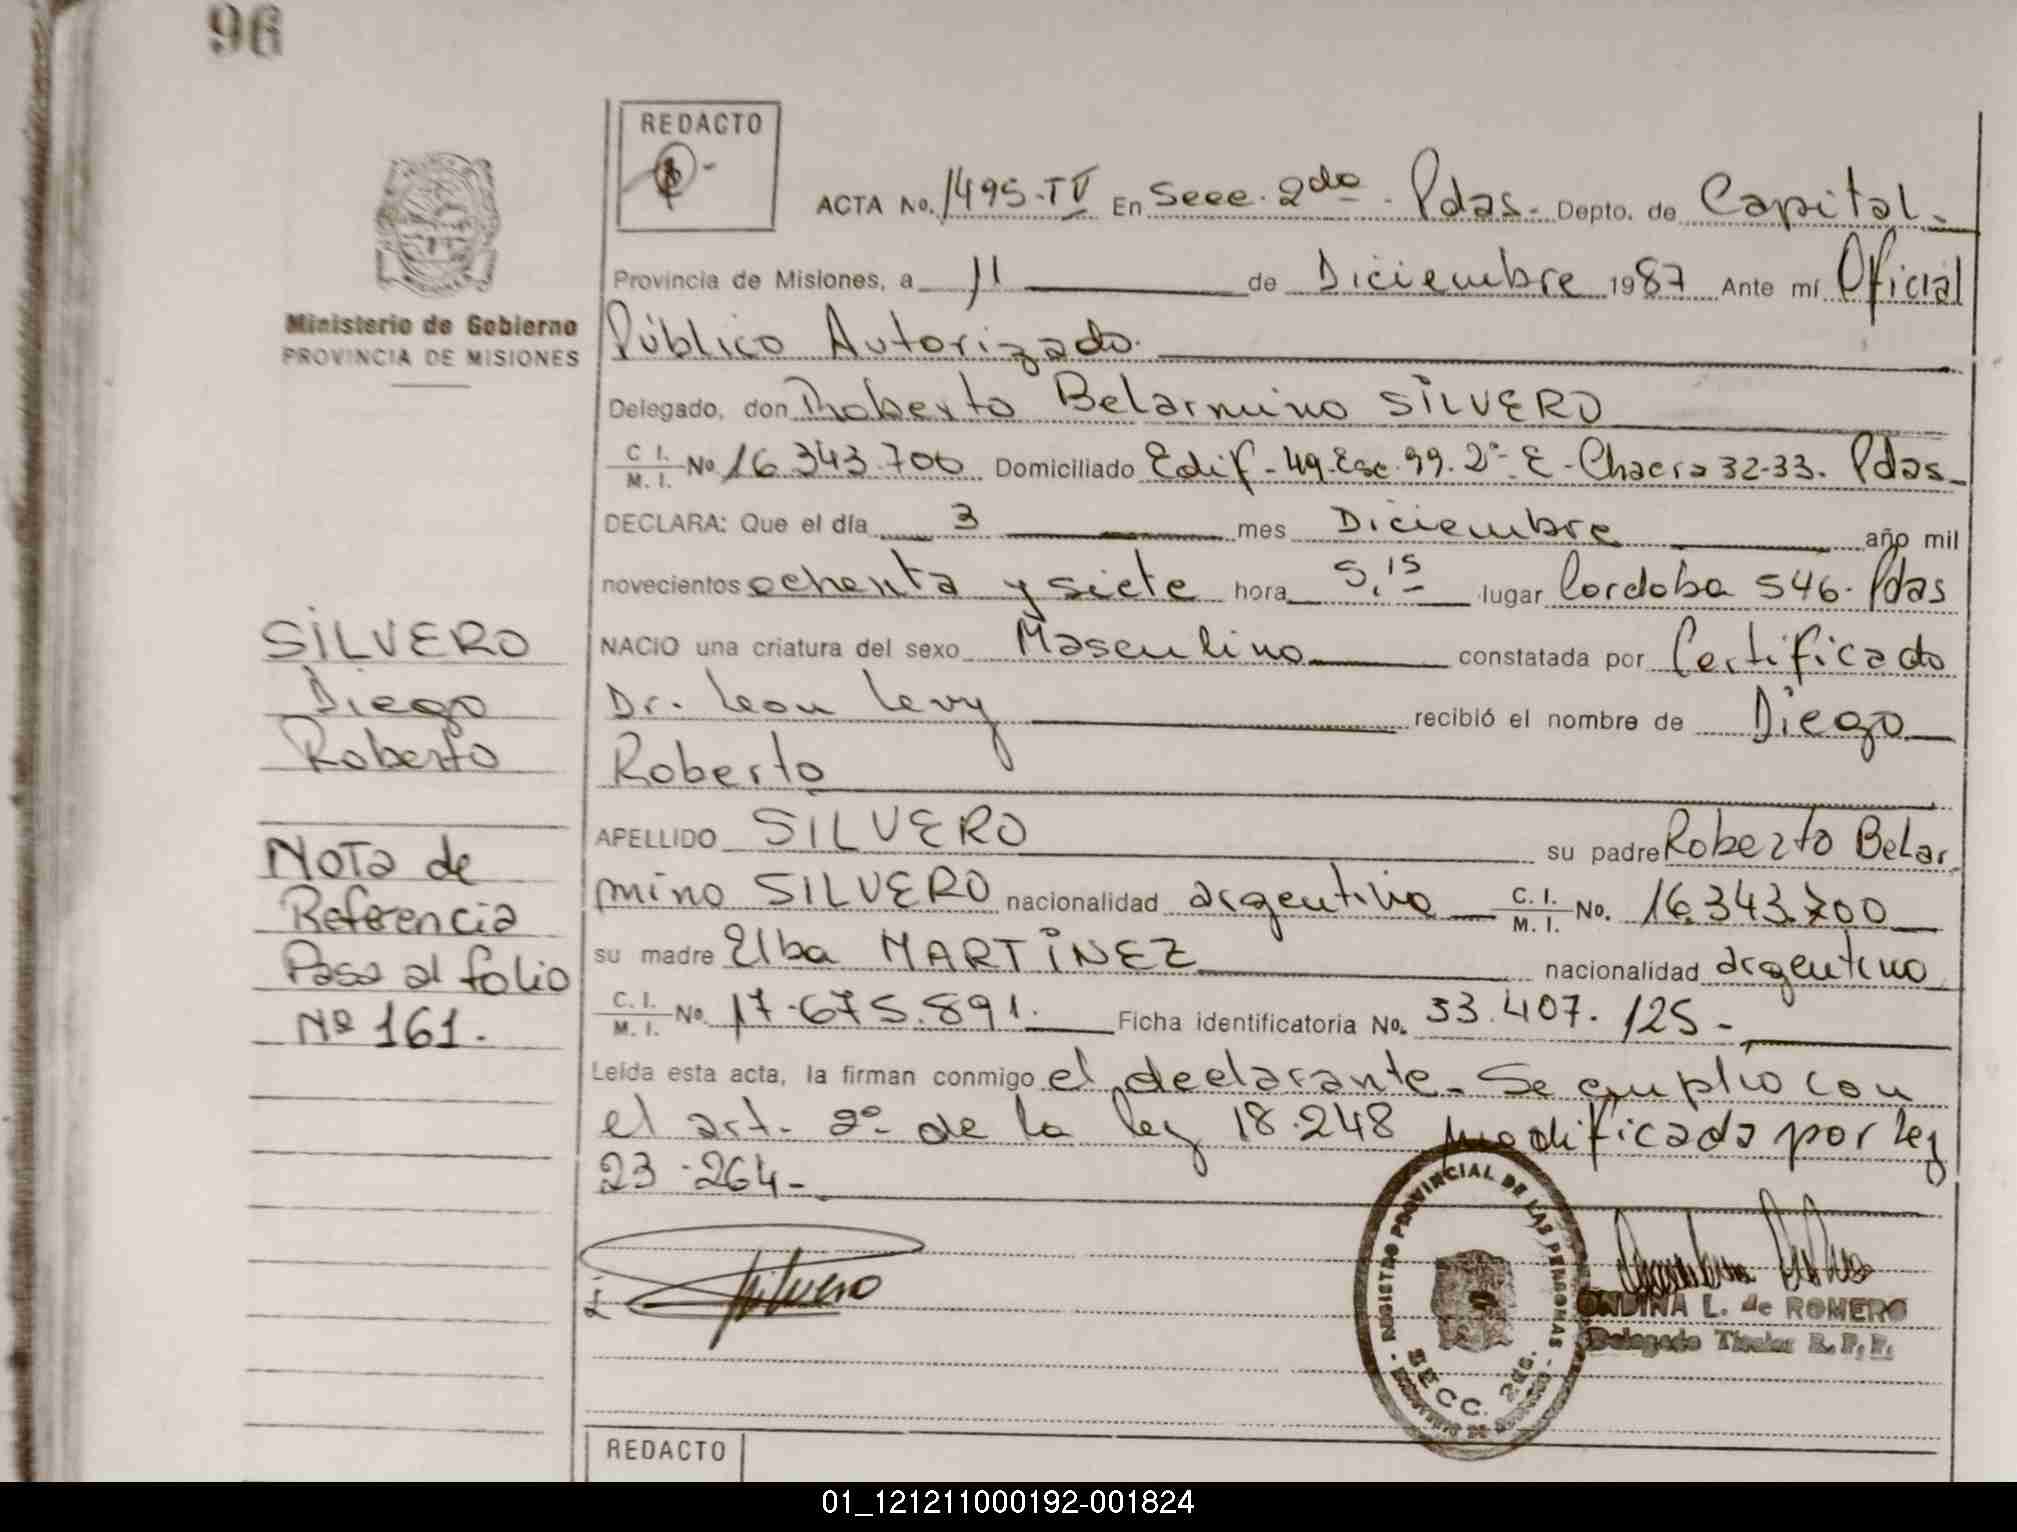 96
REDACTO
ACTA No. 1495-IV En Secc. 2da. Pdas. Depto. de Capital.
Ministerio de Gobierno
PROVINCIA DE MISIONES
Provincia de Misiones, a 11 de Diciembre 1987 Ante mí Oficial
Público Autorizado.
Delegado, don Roberto Belarmino SILVERO
C. I. M. I. No 16.343.700 Domiciliado Edif-49.Esc.99.2°-E-Chacra 32-33. Pdas.
DECLARA: Que el día 3 mes Diciembre año mil
novecientos ochenta y siete hora 5.15 lugar Cordoba 546. Pdas
NACIO una criatura del sexo Masculino constatada por Certificado
Dr. Leon Levy recibió el nombre de Diego
Roberto
APELLIDO SILVERO su padre Roberto Belar
mino SILVERO nacionalidad argentino C. I. M. I. No. 16.343.700
su madre Elba MARTINEZ nacionalidad argentino
C. I. M. I. No. 17.675.891. Ficha identificatoria No. 33.407.125-
Leída esta acta, la firman conmigo el declarante. Se cumplio con
el art. 2° de la ley 18.248 modificada por ley
23.264-
SILVERO
Diego
Roberto
Nota de
Referencia
Pasa al folio
Nº 161.
Silvero
REGISTRO PROVINCIAL DE LAS PERSONAS
SECC. 2da.
ONDINA L. de ROMERO
Delegado Titular R. P. P.
REDACTO
01_121211000192-001824